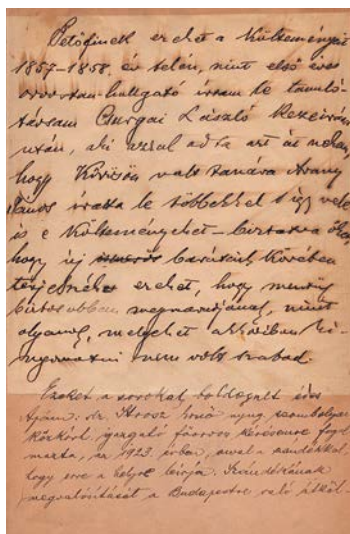 Petőfinek ezeket a költeményeit
1857–1858. év telén, mint első éves
orvostan-hallgató írtam le tanuló-
társam Csurgai László kezeirása
után, aki azzal adta azt át nekem,
hogy Kőrösön volt tanára Arany
János iratta le többekkel s így vele
is e költeményeket – biztatva őket
hogy új barátaik körében
terjesszék ezeket, hogy mennél
biztosabban megmaradjanak, mint
olyanok, melyeket akkoriban ki-
nyomatni nem volt szabad.
Ezeket a sorokat boldogult édes
Apám: dr. nyug. szombathelyi
közkórh. igazgató főorvos kérésemre fogal-
mazta, az 1923. évben, azzal a szándékkal,
hogy erre a helyre leírja. Szándékának
megvalósítását a Budapestre való átköl-